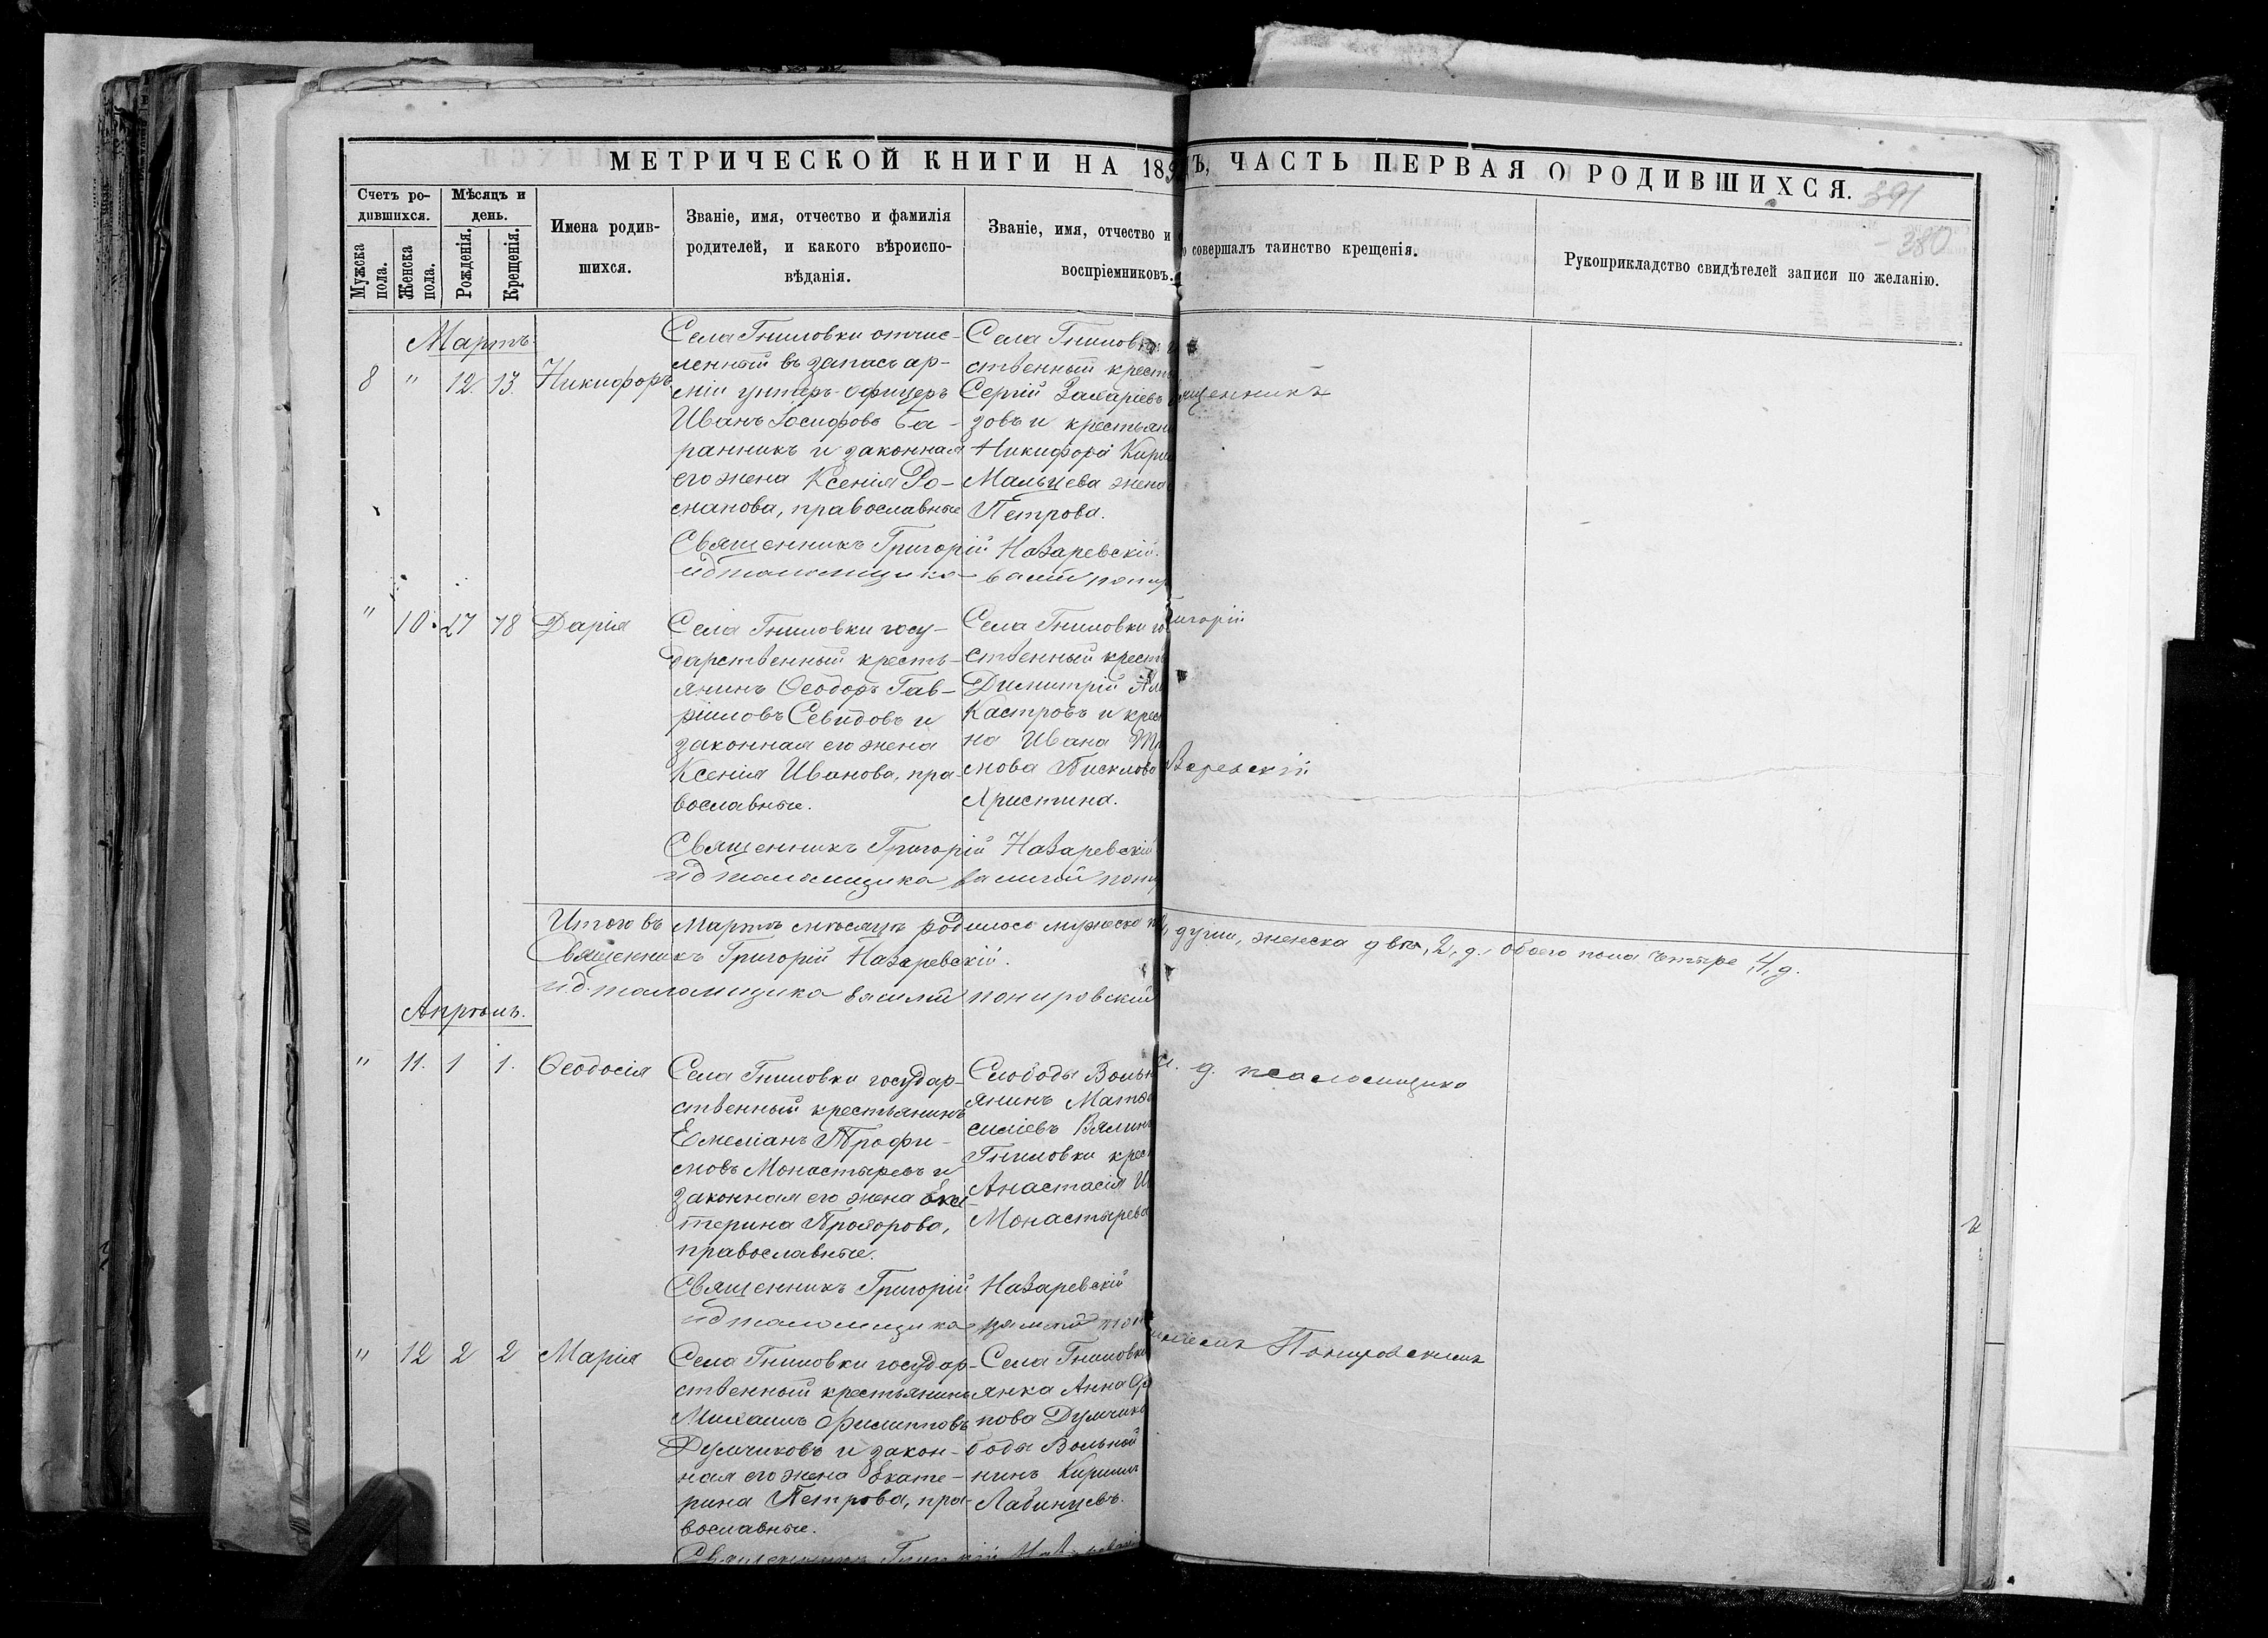 МЕТРИЧЕСКОЙ КНИГИ НА 189
Ъ, ЧАСТЬ ПЕРВАЯ О РОДИВШИХСЯ.
391
380
Счетъ ро-
дившихся.
Мѣсяцъ и
день.
Мужска
пола.
Женска
пола.
Рожденія.
Крещенія.
Имена родив-
шихся.
Званіе, имя, отчество и фамилія
родителей, и какого вѣроиспо-
вѣданія.
Званіе, имя, отчество и
воспріемниковъ.
совершалъ таинство крещенія.
Рукоприкладство свидѣтелей записи по желанію.
Мартъ.
8 " 12. 13. Никифоръ
Села Гниловки отчис-
ленный въ запасъ ар-
міи унтеръ-офицеръ
Иванъ Іосифовъ Ба-
ранникъ и законная
его жена Ксенія Ро-
манова, православные
Села Гниловки
ственный кресть
Сергій Захаріевъ
зовъ и крестьян
Никифора Кири
Мальцева жена
Петрова.
щенникъ
Священникъ Григорій Назаревскій.
и д псаломщика
" 10. 27 28 Дарія
Села Гниловки госу-
дарственный кресть-
янинъ Ѳеодоръ Гав-
ріиловъ Севидовъ и
законная его жена
Ксенія Иванова, пра-
вославные.
Села Гниловки го
ственный кресть
Димитрій
Кастровъ и крес
на Ивана
мова Пискл
Христина.
игорій
Заревскій
Священникъ Григорій Назаревскій
и д псаломщика Василій Пони
Итого въ Мартѣ мѣсяцѣ родилось мужеска п
души, женска двѣ, 2, д., обоего пола четыре, 4, д.
Священникъ Григорій Назаревскій.
и. д. псаломщика Василій Понировскій
Апрѣль.
" 11. 1 1. Ѳеодосія
Села Гниловки государ-
ственный крестьянинъ
Емеліанъ Трофи-
мовъ Монастыревъ и
законная его жена Ека-
терина Прохорова,
православные.
Слободы Вольн
янинъ Матѳ
силіевъ Вялин
Гниловки крес
Анастасія И
Монастырева
и. д. псаломщика
Священникъ Григорій Назаревскій
и д псаломщика
" 12 2 2 Марія
Села Гниловки государ-
ственный крестьянинъ
Михаилъ Филипповъ
Думчиковъ и закон-
ная его жена Екате-
рина Петрова, пра-
вославные.
Села Гниловки
янка Анна
пова Думчико
боды Вольной
нинъ Кирилл
Лабинцевъ.
Понировскимъ
Священникъ Григорій Назаревскій